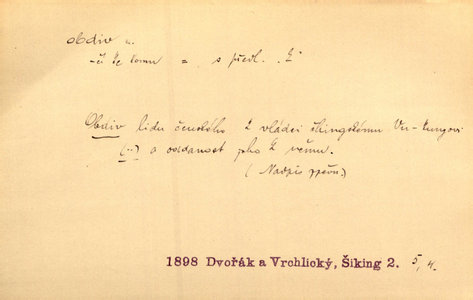 obdiv u.
-čí k komu = s předl. „k"
Obdiv lidu čouského k vládci čouskému Vu-kungovi
(..) a oddanost jeho k němu.
(Nadpis zpěvu.)
1898 Dvořák a Vrchlický, Šiking 2. 5, 4.